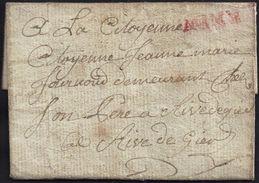 A La Citoyenne
Citoyenne Jeanne marie
fournoud demeurant Chez
Son Pere a Rivedegier
a Rive de Gier